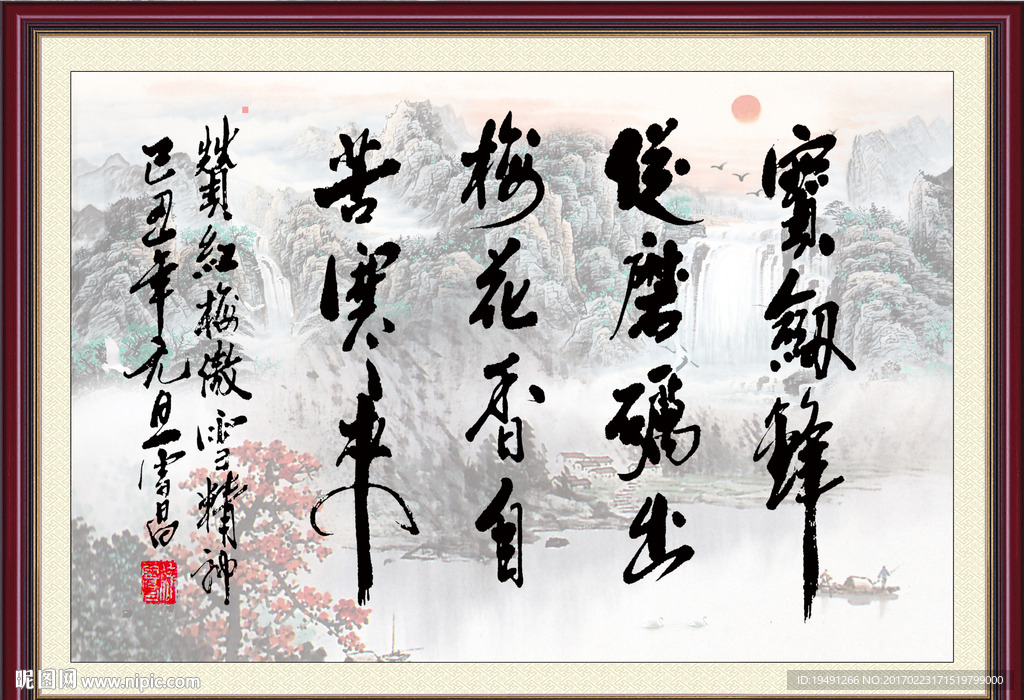 寶劍鋒
從磨礪出
梅花香自
苦寒來
贊紅梅傲雪精神
己丑年元旦雪昌
昵图网 www.nipic.com
ID:19491266 NO:20170223171519799000